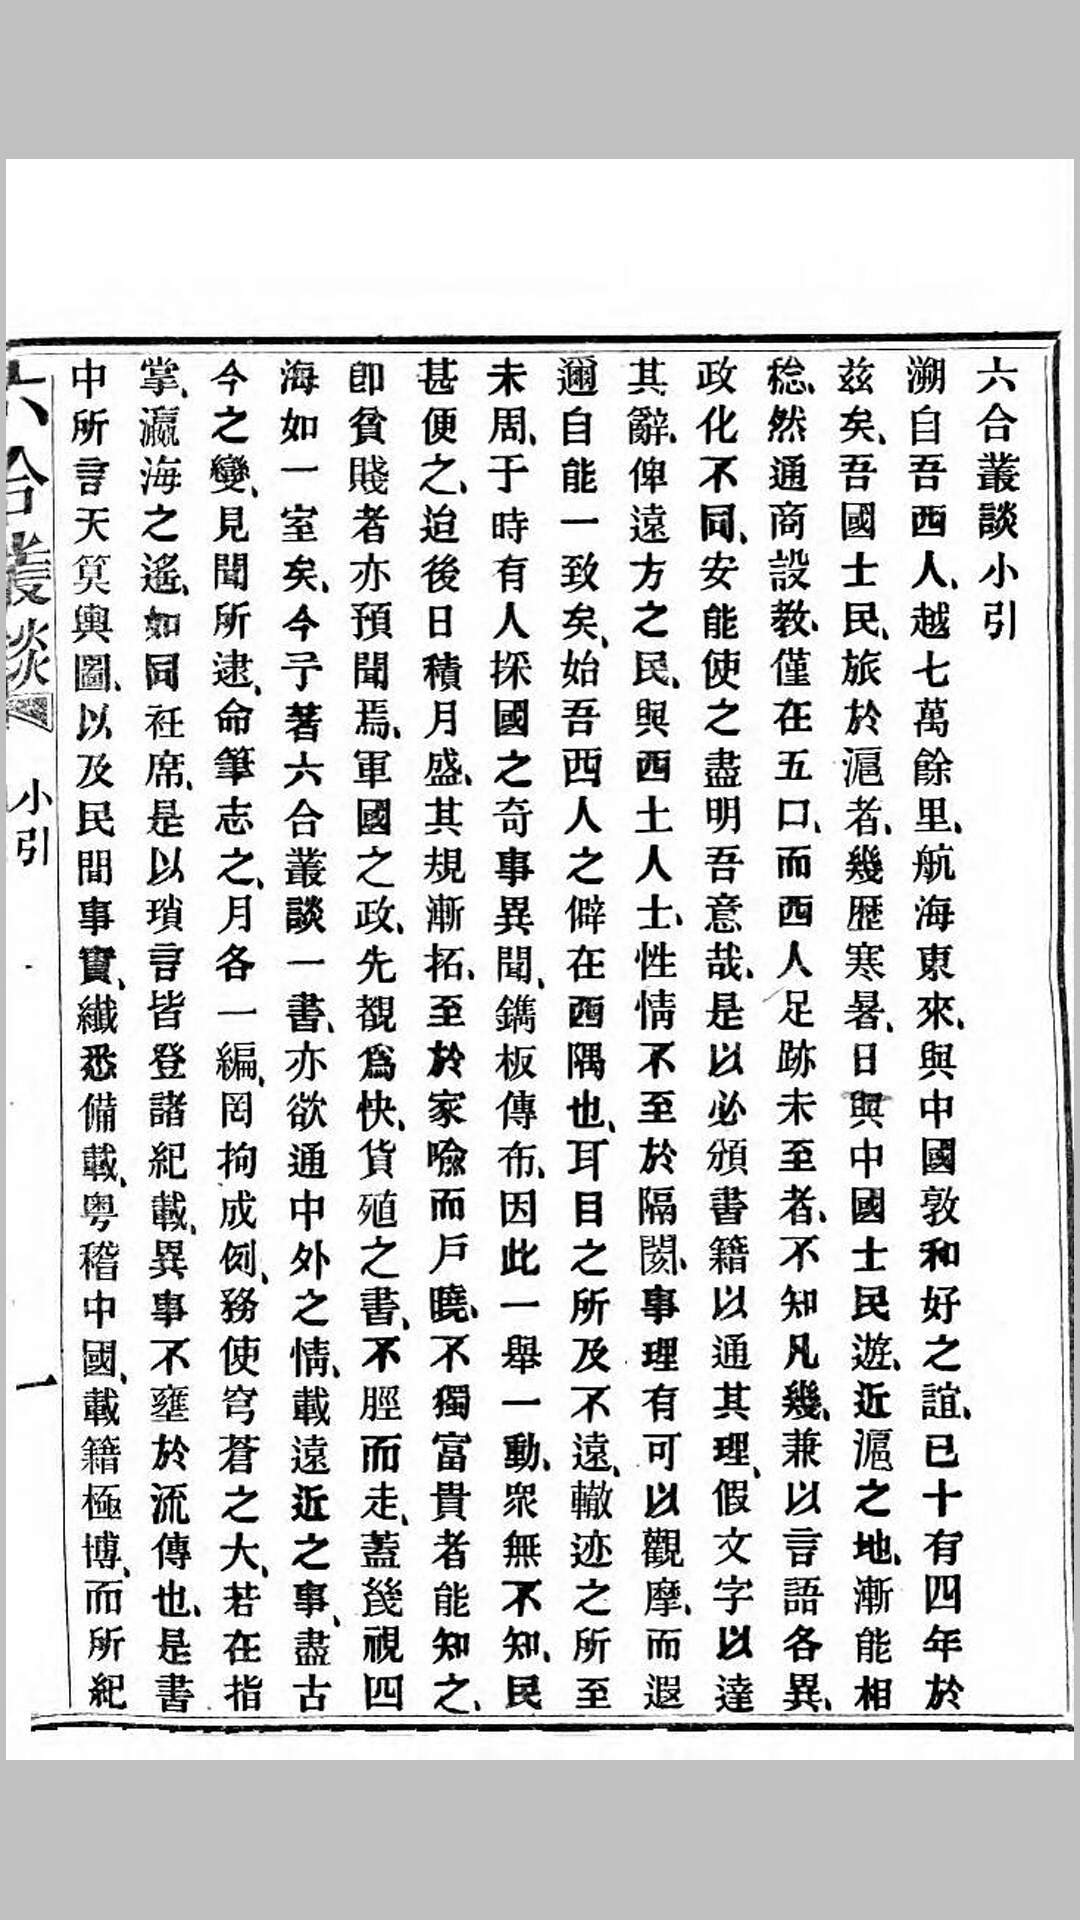 六合叢談小引
溯自吾西人、越七萬餘里、航海東來、與中國敦和好之誼、已十有四年於
玆矣、吾國士民、旅於滬者、幾歷寒暑、日與中國士民遊、近滬之地、漸能相
稔、然通商設教、僅在五口、而西人足跡未至者、不知凡幾、兼以言語各異、
政化不同、安能使之盡明吾意哉、是以必頒書籍以通其理、假文字以達
其辭、俾遠方之民、與西土人士、性情不至於隔閡、事理有可以觀摩、而遐
邇自能一致矣、始吾西人之僻在西隅也、耳目之所及不遠、轍迹之所至
未周、于時有人採國之奇事異聞、鐫板傳布、因此一舉一動、衆無不知、民
甚便之、迨後日積月盛、其規漸拓、至於家喻而戶曉、不獨富貴者能知之、
卽貧賤者亦預聞焉、軍國之政、先覩爲快、貨殖之書、不脛而走、蓋幾視四
海如一室矣、今予著六合叢談一書、亦欲通中外之情、載遠近之事、盡古
今之變、見聞所逮、命筆志之、月各一編、罔拘成例、務使穹蒼之大、若在指
掌、瀛海之遙、如同衽席、是以瑣言皆登諸紀載、異事不壅於流傳也、是書
中所言天算輿圖、以及民間事實、纖悉備載、粤稽中國、載籍極博、而所紀
六合叢談
小引
一